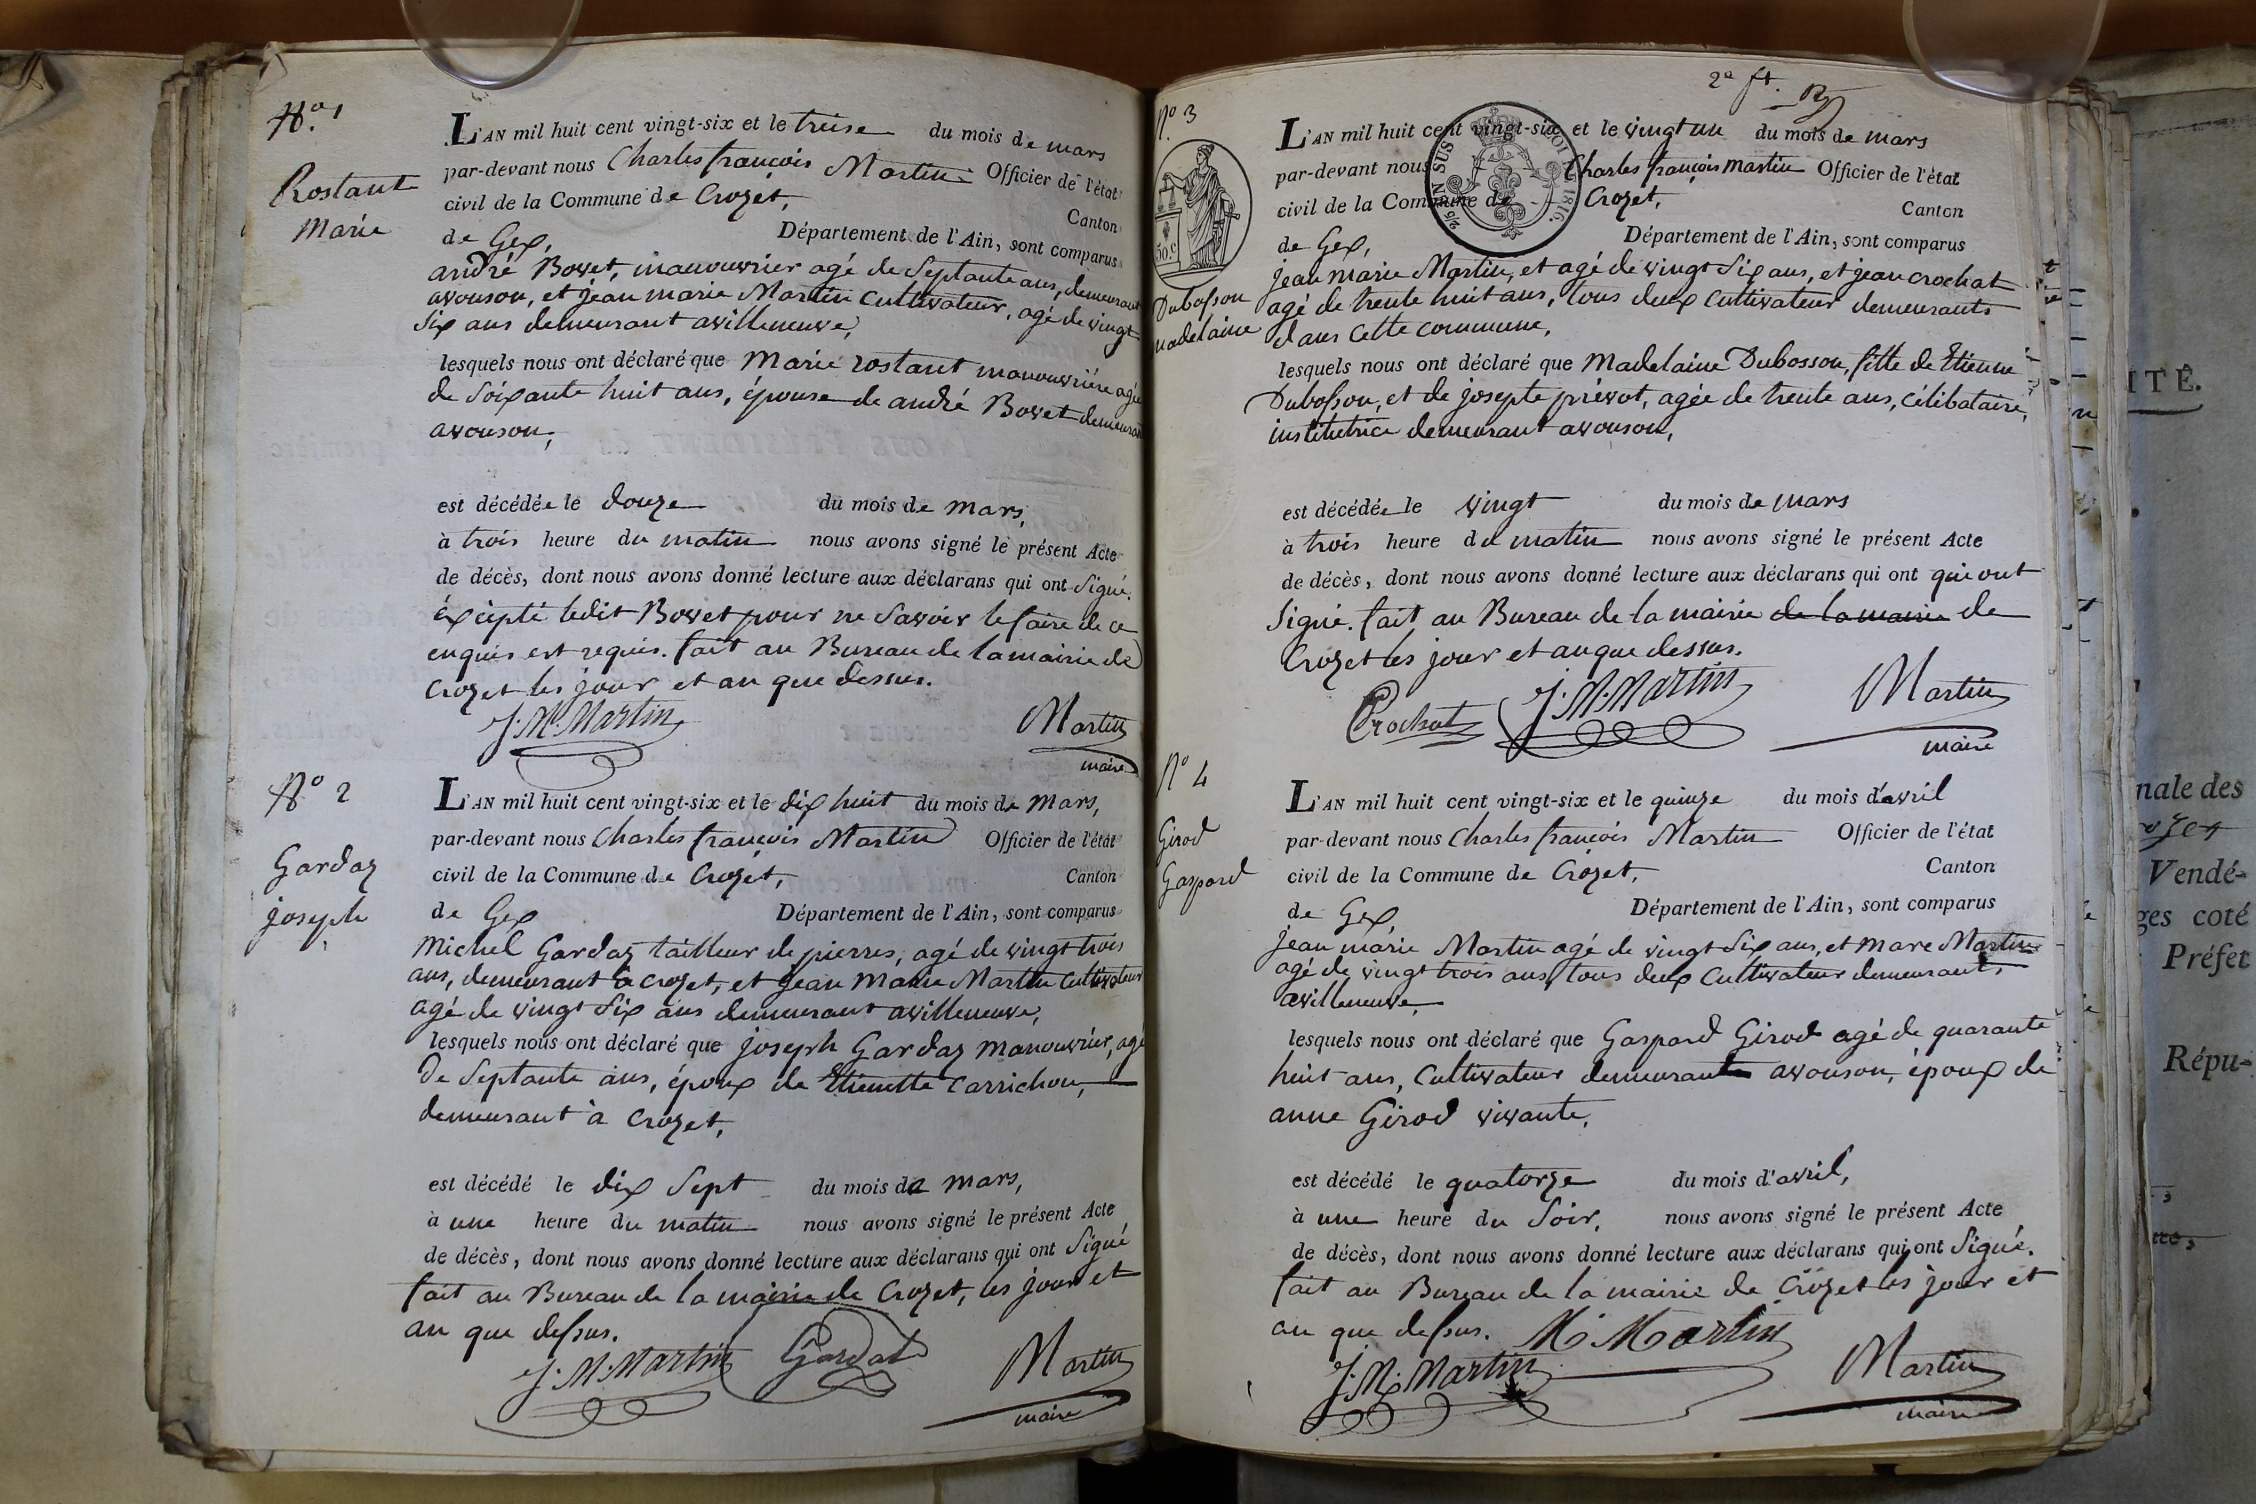 N.º 1
Rostant
Marie
L'AN mil huit cent vingt-six et le treise du mois de mars
par-devant nous Charles françois Martin Officier de l'état
civil de la Commune de Crozet, Canton
de Gex, Département de l'Ain, sont comparus
andré Bovet, manouvrier agé de Septante ans, demeurant
avouson, et jean marie Martin Cultivateur, agé de vingt
Six ans demeurant avilleneuve,
lesquels nous ont déclaré que Marie rostant manouvrière agée
de Soixante huit ans, épouse de andré Bovet demeurant
avouson,
est décédée le douze du mois de mars,
à trois heure du matin nous avons signé le présent Acte
de décès, dont nous avons donné lecture aux déclarans qui ont Signé.
éxcépté ledit Bovet pour ne Savoir le faire de ce
enquis est requis. fait au Bureau de la mairie de
Crozet les jour et an que dessus.
J. M. Martin Martin
maire
Nº 2
Gardaz
joseph
L'AN mil huit cent vingt-six et le dix huit du mois de Mars,
par-devant nous Charles françois Martin Officier de l'état
civil de la Commune de Crozet, Canton
de Gex Département de l'Ain, sont comparus
Michel Gardaz tailleur de pierres, agé de vingt trois
ans, demeurant à crozet, et jean Marie Martin Cultivateur
agé de vingt Six ans demeurant avilleneuve,
lesquels nous ont déclaré que joseph Gardaz manouvrier, agé
De Septante ans, époux de Etienette Carrichon,
demeurant à Crozet,
est décédé le dix Sept du mois de mars,
à une heure du matin nous avons signé le présent Acte
de décès, dont nous avons donné lecture aux déclarans qui ont Signé
fait au Bureau de la mairie de Crozet, les jour et
an que dessus.
J. M. Martin Gardat Martin
maire
2e ft.
Nº 3
50.c
TIMBRE
Dubosson
madelaine
L'AN mil huit cent vingt-six et le vingt un du mois de mars
par-devant nous Charles françois Martin Officier de l'état
civil de la Commune de Crozet, Canton
de Gex, Département de l'Ain, sont comparus
jean marie Martin, et agé de vingt Six ans, et jean crochat
agé de trente huit ans, tous deux Cultivateur demeurants
dans cette commune,
lesquels nous ont déclaré que Madelaine Dubosson, fille de Etienne
Dubosson, et de josepte prévot, agée de trente ans, Célibataire,
institutrice demeurant avouson,
est décédée le vingt du mois de mars
à trois heure du matin nous avons signé le présent Acte
de décès, dont nous avons donné lecture aux déclarans qui ont qui ont
Signé. fait au Bureau de la mairie de la mairie de
Crozet les jour et an que dessus.
Crochat J. M. Martin Martin
maire
Nº 4
Girod
Gaspard
L'AN mil huit cent vingt-six et le quinze du mois d'avril
par-devant nous Charles françois Martin Officier de l'état
civil de la Commune de Crozet, Canton
de Gex, Département de l'Ain, sont comparus
jean marie Martin agé de vingt Six ans, et Marc Martin
agé de vingt trois ans, tous deux Cultivateur demeurant,
avilleneuve,
lesquels nous ont déclaré que Gaspard Girod agé de quarante
huit ans, Cultivateur demeurant avouson, époux de
anne Girod vivante,
est décédé le quatorze du mois d'avril,
à une heure du Soir, nous avons signé le présent Acte
de décès, dont nous avons donné lecture aux déclarans qui ont Signé.
fait au Bureau de la mairie de Crozet les jour et
an que dessus. M. Martin
J. M. Martin Martin
maire
ITÉ.
nale des
Vendé-
ges coté
Préfet
Répu-